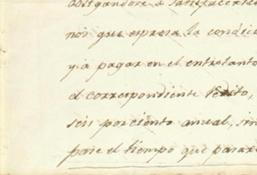 obligandose a satisfacerle
nos que espresa la condici
y a pagar en el entretanto
el correspondiente redito,
seis por ciento anual, sin
pase el tiempo que pasare